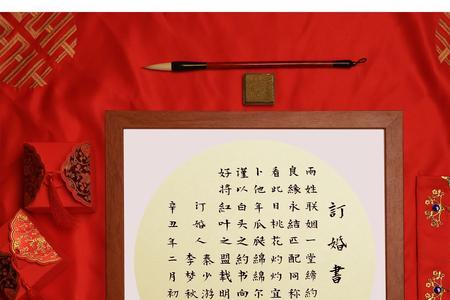 訂婚書
两姓联姻一堂締約
良缘永结匹配同称
看此日桃花灼灼宜
卜他年瓜瓞綿綿尔
谨以白头之约书向
好将紅叶之盟载明
订婚人
秦少游
李梦秋
辛丑年二月初